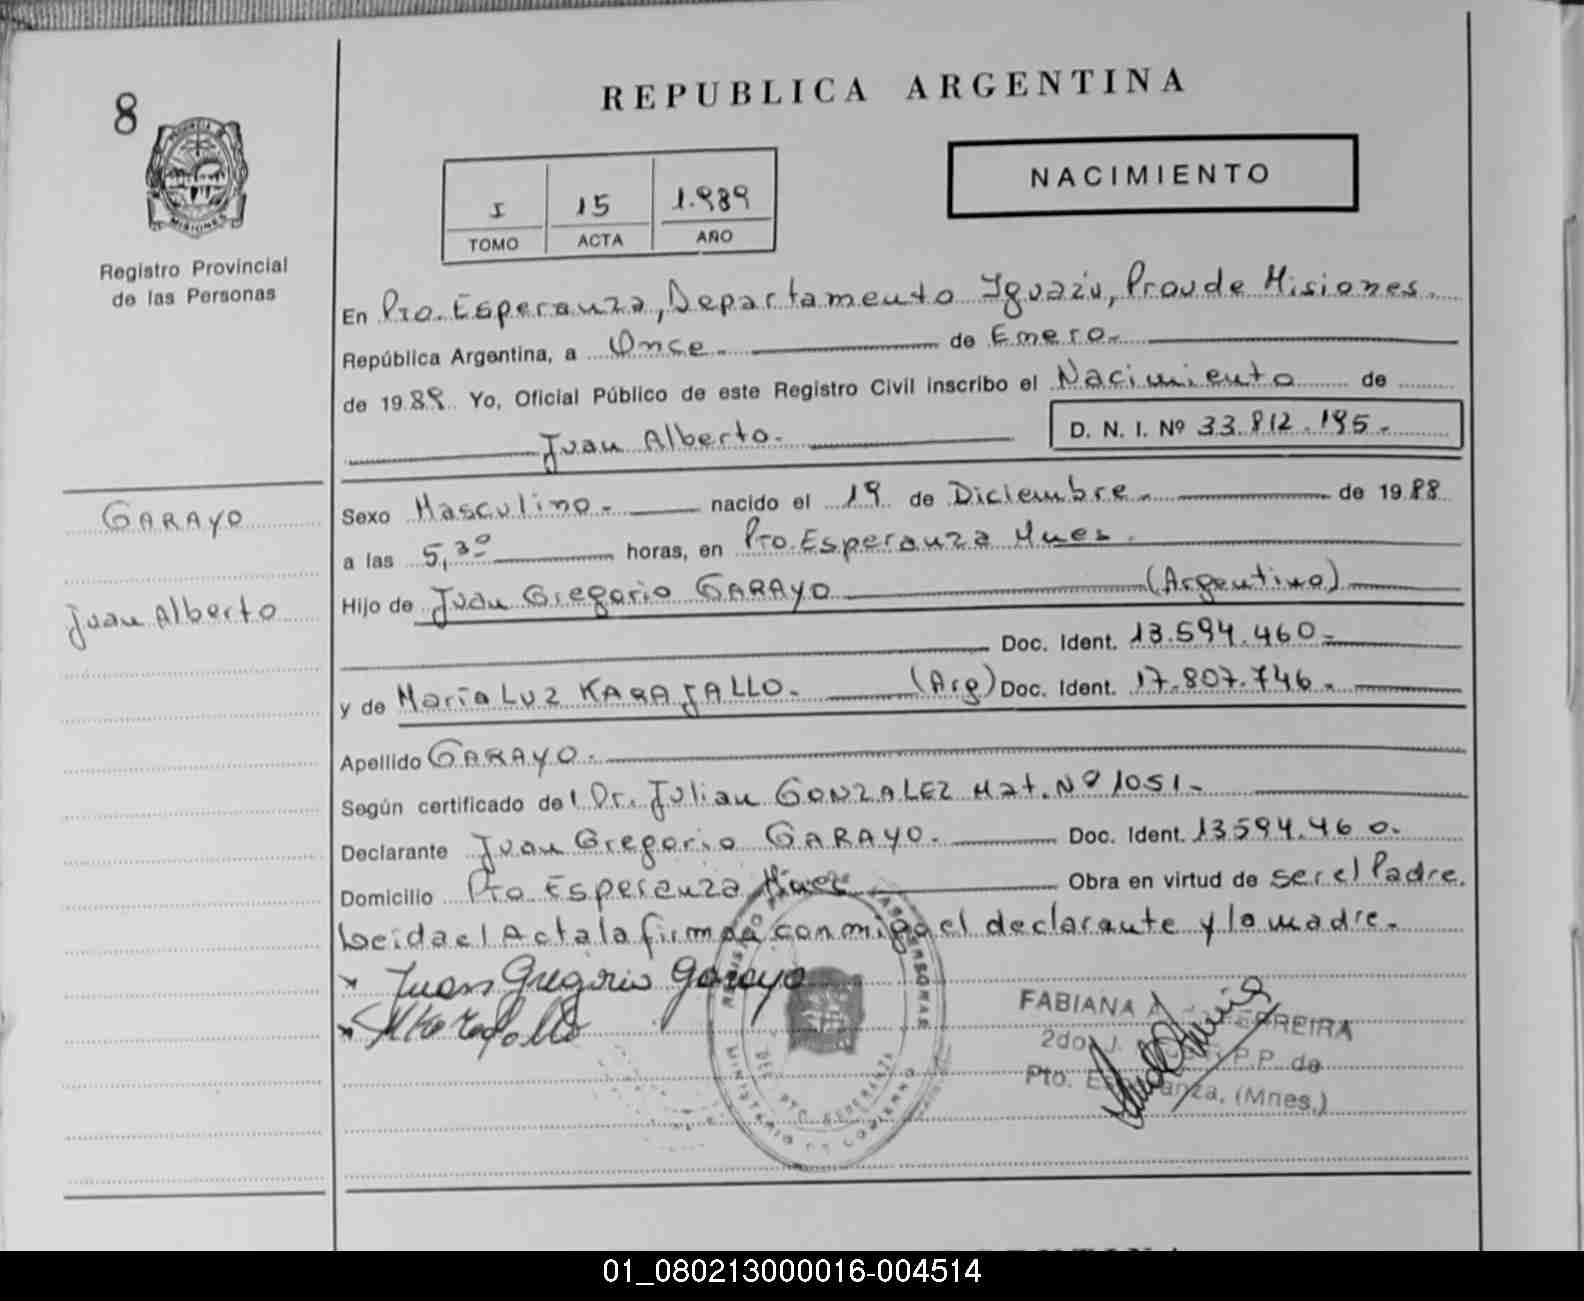 REPUBLICA ARGENTINA
8
PROVINCIA DE
MISIONES
Registro Provincial
de las Personas
NACIMIENTO
I 15 1.989
TOMO ACTA AÑO
En Pto. Esperanza, Departamento Iguazú, Prov de Misiones.
República Argentina, a Once. de Enero.
de 1989. Yo, Oficial Público de este Registro Civil inscribo el Nacimiento de
Juan Alberto. D. N. I. Nº 33.812.195.
GARAYO
Juan Alberto
Sexo Masculino. nacido el 19 de Diciembre. de 1988
a las 5,30 horas, en Pto. Esperanza Mnes.
Hijo de Juan Gregorio GARAYO (Argentino)
Doc. Ident. 13.594.460
y de María LUZ KARAJALLO. (Arg) Doc. Ident. 17.807.746.
Apellido GARAYO.
Según certificado del Dr. Julian GONZALEZ Mat. Nº 1051.
Declarante Juan Gregorio GARAYO. Doc. Ident. 13594.460.
Domicilio Pto Esperanza Mnes Obra en virtud de ser el Padre.
Leida el Acta la firman conmigo el declarante y la madre.
Juan Gregorio Garayo
REGISTRO PERSONAS
DEL PTO. ESPERANZA
MINISTERIO DE GOBIERNO
FABIANA A FERREIRA
2do. J. P.P. de
Pto. Esperanza, (Mnes.)
01_080213000016-004514